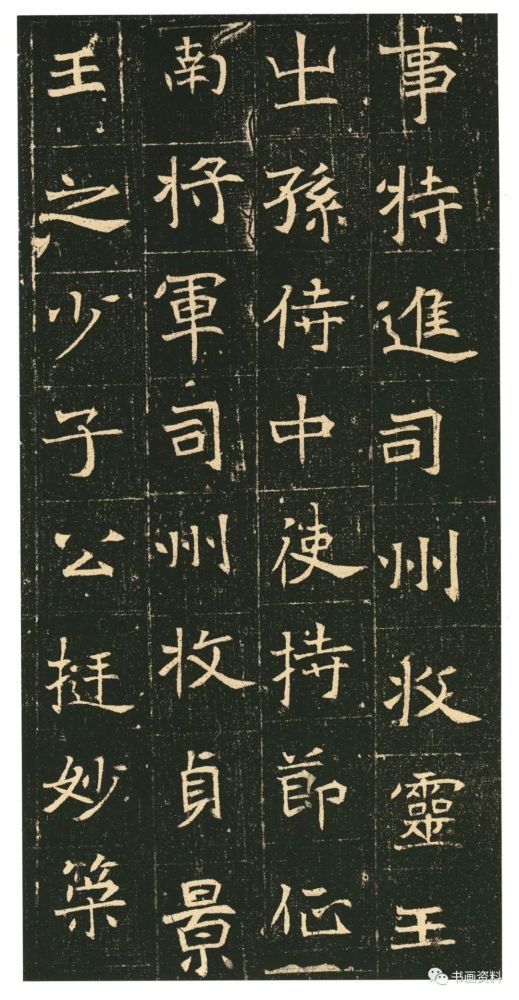 事特進司州牧靈王
㞢孫侍中使持節征
南将軍司州牧貞景
王之少子公挺妙
书画资料